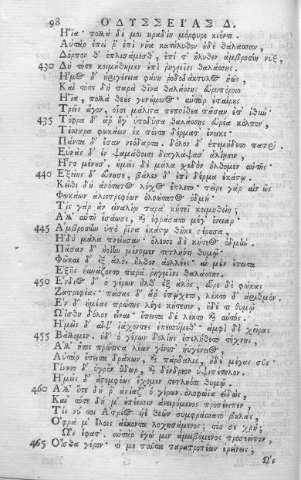 98 ΟΔΥΣΣΕΙΑΣ Δ.
Ἤϊα· πολλὰ δέ μοι κραδίη πόρφυρε κιόντι.
Αὐτὰρ ἐπεί ῥ' ἐπὶ νῆα κατήλυθον ἠδὲ θάλασσαν,
Δόρπον θ' ὁπλισάμεσθ', ἐπί τ' ἤλυθεν ἀμβροσίη νύξ,
430 Δὴ τότε κοιμήθημεν ἐπὶ ῥηγμῖνι θαλάσσης.
Ἦμος δ' ἠριγένεια φάνη ῥοδοδάκτυλος ἠὼς,
Καὶ τότε δὴ παρὰ θῖνα θαλάσσης εὐρυπόροιο
Ἤϊα, πολλὰ θεοὺς γουνούμενος· αὐτὰρ ἑταίρους
Τρεῖς ἄγον, οἷσι μάλιστα πεποίθεα πᾶσαν ἐπ' ἰθύν.
435 Τόφρα δ' ἄρ' ἥγ' ὑποδῦσα θαλάσσης εὐρέα κόλπον
Τέσσαρα φωκάων ἐκ πόντου δέρματ' ἔνεικε·
Πάντα δ' ἔσαν νεόδαρτα. δόλον δ' ἐπεμήδετο πατρί.
Εὐνὰς δ' ἐν ψαμάθοισι διαγλάψασ' ἁλίῃσιν,
Ἧστο μένουσ'. ἡμεῖς δὲ μάλα σχεδὸν ἤλθομεν αὐτῆς·
440 Ἑξείης δ' εὔνησε, βάλεν δ' ἐπὶ δέρμα ἑκάστῳ.
Κεῖθι δὴ αἰνότατος λόχος ἔπλετο· τεῖρε γὰρ αἰνῶς
Φωκάων ἁλιοτρεφέων ὀλοώτατος ὀδμή·
Τίς γάρ κ' εἰναλίῳ παρὰ κήτεϊ κοιμηθείη;
Ἀλλ' αὐτὴ ἐσάωσε, καὶ ἐφράσατο μέγ' ὄνειαρ.
445 Ἀμβροσίην ὑπὸ ῥῖνα ἑκάστῳ θῆκε φέρουσα,
Ἡδὺ μάλα πνείουσαν· ὄλεσσε δὲ κήτεος ὀδμήν.
Πᾶσαν δ' ἠοίην μένομεν τετληότι θυμῷ·
Φῶκαι δ' ἐξ ἁλὸς ἦλθον ἀολλέες· αἱ μὲν ἔπειτα
Ἑξῆς εὐνάζοντο παρὰ ῥηγμῖνι θαλάσσης.
450 Ἔνδιος δ' ὁ γέρων ἦλθ' ἐξ ἁλὸς, εὗρε δὲ φώκας
Ζατρεφέας· πάσας δ' ἄρ' ἐπῴχετο, λέκτο δ' ἀριθμόν.
Ἐν δ' ἡμέας πρώτους λέγε κήτεσιν, οὐδέ τι θυμῷ
Ὠΐσθη δόλον εἶναι· ἔπειτα δὲ λέκτο καὶ αὐτός.
Ἡμεῖς δ' αἶψ' ἰάχοντες ἐπεσσύμεθ'· ἀμφὶ δὲ χεῖρας
455 Βάλλομεν. οὐδ' ὁ γέρων δολίης ἐπελήθετο τέχνης·
Ἀλλ' ἤτοι πρώτιστα λέων γένετ' ἠϋγένειος·
Αὐτὰρ ἔπειτα δράκων, καὶ πάρδαλις, ἠδὲ μέγας σῦς·
Γίνετο δ' ὑγρὸν ὕδωρ, καὶ δένδρεον ὑψιπέτηλον.
Ἡμεῖς δ' ἀστεμφέως ἔχομεν τετληότι θυμῷ.
460 Ἀλλ' ὅτε δή ῥ' ἀνίαζ' ὁ γέρων ὀλοφώϊα εἰδὼς,
Καὶ τότε δή μ' ἐπέεσσιν ἀνειρόμενος προσέειπεν,
Τίς νύ τοι Ἀτρέος υἱὲ θεῶν συμφράσσατο βουλὰς,
Ὄφρα μ' ἕλοις ἀέκοντα λοχησάμενος; τέο σε χρή;
Ὣς ἔφατ'. αὐτὰρ ἐγώ μιν ἀμειβόμενος προσέειπον,
465 Οἶσθα γέρον· τί με ταῦτα παρατροπέων ἐρεείνεις;